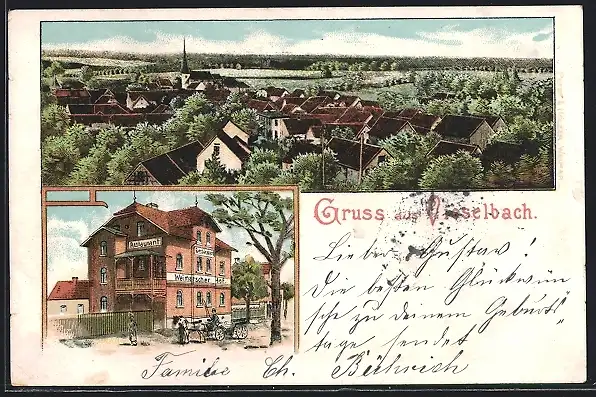 Gruss aus Vieselbach.
Restaurant
Weimarischer Hof
Lieber Gustav!
Die besten Glückwün
sche zu deinem Geburts
tage sendet
Familie Ch.